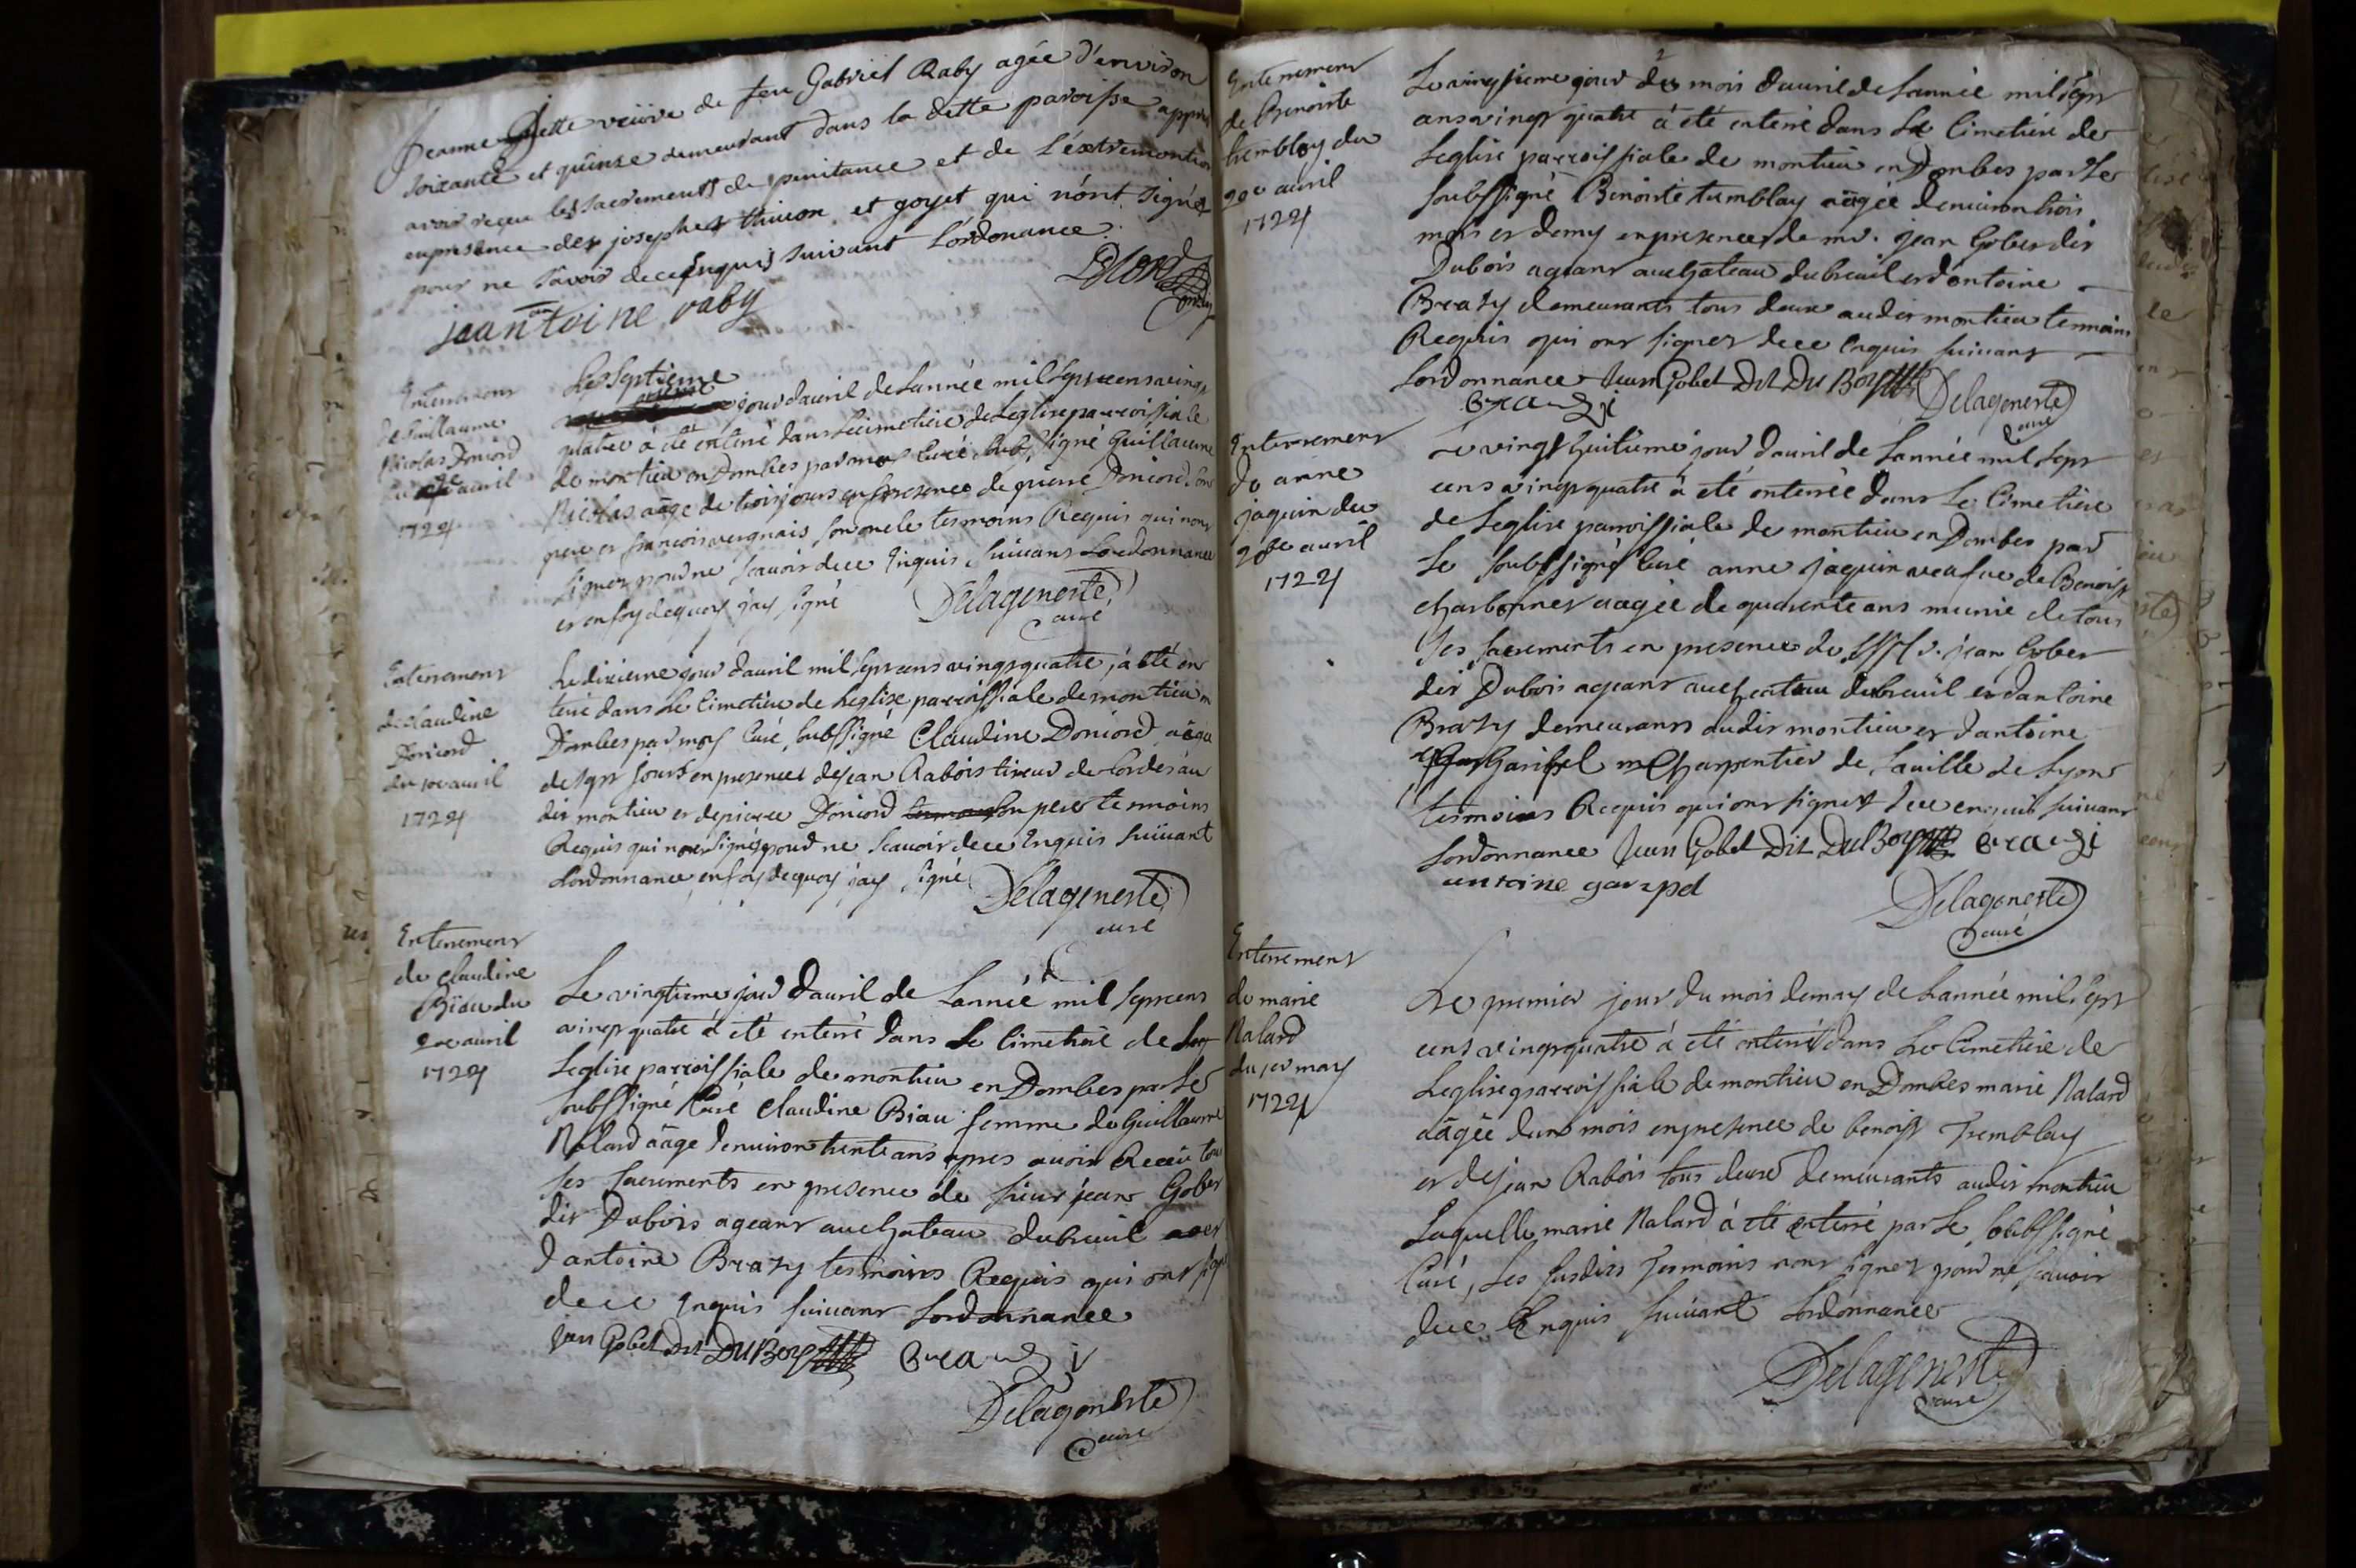 Jeanne veuve de feu Gabriel Raby agée d'environ
soixante et quinze demeurant dans la dette paroisse appres
avoir reçeu les sacrements de penitance et de l'extremontion
en presence des joseph thivion et goyet qui n'ont signés
pour ne sávoir de ce enquis suivant l'ordonance.
jean antoine raby
Enterrement
de Guillaume
Nicolas Doniord
du avril
1724
Le Septieme
jour davril de Lannée mil sept cens vingt
quatre à été enterré dans Le cimetiere de Leglise parroissiale
de montieu en Dombes par moy Curé soubssigné Guillaume
Nicolas aâgé de trois jours en presence de pierre Doniord son
pere et francois vergnais son oncle tesmoins Requis qui nont
signez pour ne scavoir de ce Enquis suivant Lordonnance
et en foy de quoy jay signé Delageneste
curé
Enterrement
de claudine
Doniord
du 10e avril
1724
Le dixieme jour davril mil sept cens vingt quatre j'a été en
terré dans Le Cimetiere de Leglise parroissiale de montieu en
Dombes par moy Curé soubssigné Claudine Doniord aâgée
de sept jours en presence de jean Rabois tireur de Cordes au
dit montieu et de pierre Doniord son pere tesmoins
Requis qui nont signés pour ne scavoir de ce Enquis suivant
Lordonnance en foy de quoy jay signé Delageneste
curé
Enterrement
de claudine
Biau du
20e avril
1724
Le vingtieme jour davril de Lannée mil sept cens
vingt quatre à été enterré dans Le Cimetiere de
Leglise parroissiale de montieu en Dombes par Le
soubssigné Curé Claudine Biau femme de Guillaume
Nalard aâgé denviron trente ans apres avoir Receu tous
ses sacrements en presence de sieur jean Gobet
dit Dubois ageant au chateau dubreuil et
d'antoine Brazy tesmoins Requis qui ont signé
de ce Enquis suivant Lordonnance
jean Gobet Dit DuBoy Brazy
Delageneste
curé
Enterrement
de Benoiste
tremblay du
20e avril
1724
Le vingtieme jour du mois davril de Lannée mil sept
cens vingt quatre à été enterré dans Le Cimetiere de
Leglise parroissiale de montieu en Dombes par Le
soubssigné Benoiste tremblay aâgée denviron trois
mois et demy en presence de mr. jean Gobet dit
Dubois ageant au chateau dubreuil et d'antoine
Brazy demeurants tous deux au dit montieu tesmoins
Requis qui ont signez de ce Enquis suivant
Lordonnance Jean Gobet Dit Du Boy Delageneste
Brazy curé
Enterrement
de anne
jaquin du
28e avril
1724
Le vingt huitieme jour davril de Lannée mil sept
cens vingt quatre à été enterrée dans Le Cimetiere
de Leglise parroissiale de montieu en Dombes par
Le soubssigné Curé anne jaquin veufve de Benoist
charbonnet aagée de quarente ans munie de tous
ses sacrements en presence de jean Gobet
dit Dubois ageant au chateau dubreuil et d'antoine
Brazy demeurants audit montieu et d'antoine
me Charpentier de La ville de Lyon
tesmoins Requis qui ont signez de ce enquis suivant
Lordonnance Jean Gobet Dit DuBoy Brazy
antoine
Delageneste
curé
Enterrement
de marie
Nalard
du 1er may
1724
Le premier jour du mois de may de Lannée mil sept
cens vingt quatre à été enterré dans Le Cimetiere de
Leglise parroissiale de montieu en Dombes marie Nalard
aâgée dun mois en presence de benoist Tremblay
et de jean Rabois tous deux demeurants audit montieu
Laquelle marie Nalard à été enterré par Le soubssigné
Curé, Les susdits Tesmoins nont signez pour ne scavoir
de ce Enquis suivant Lordonnance
Delageneste
curé